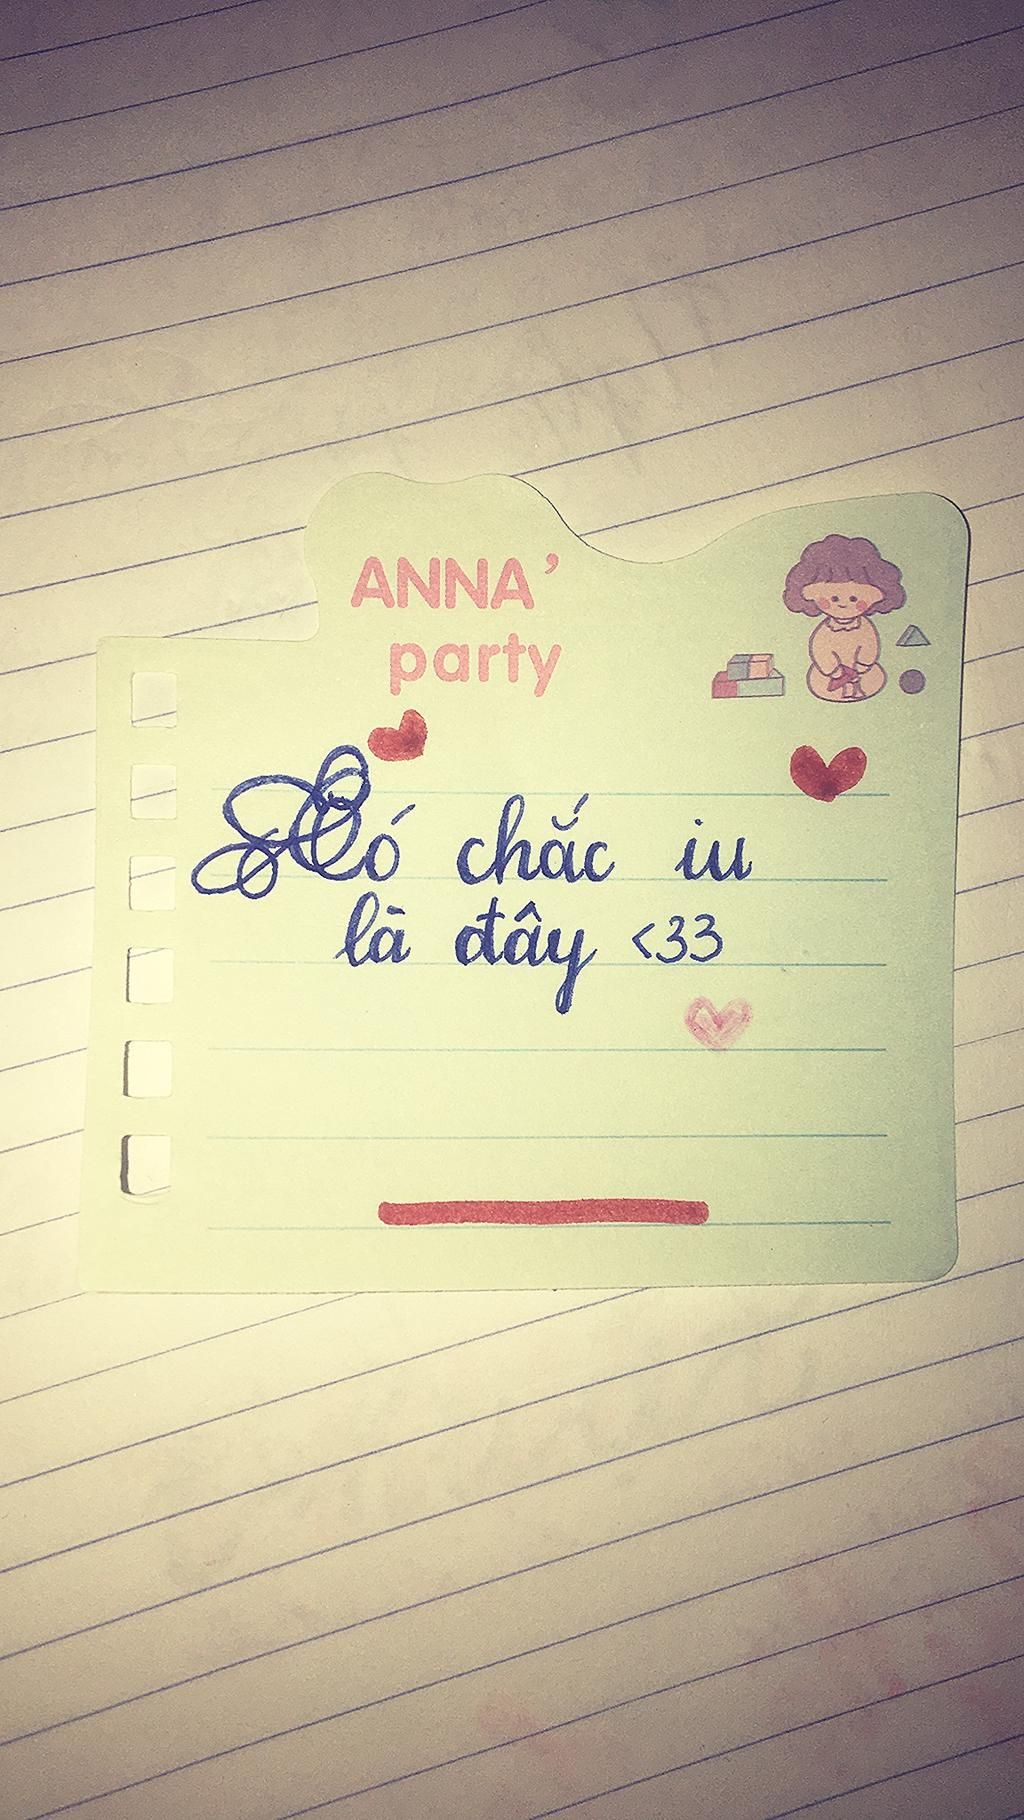 ANNA'
party
Có chắc iu
là đây <33